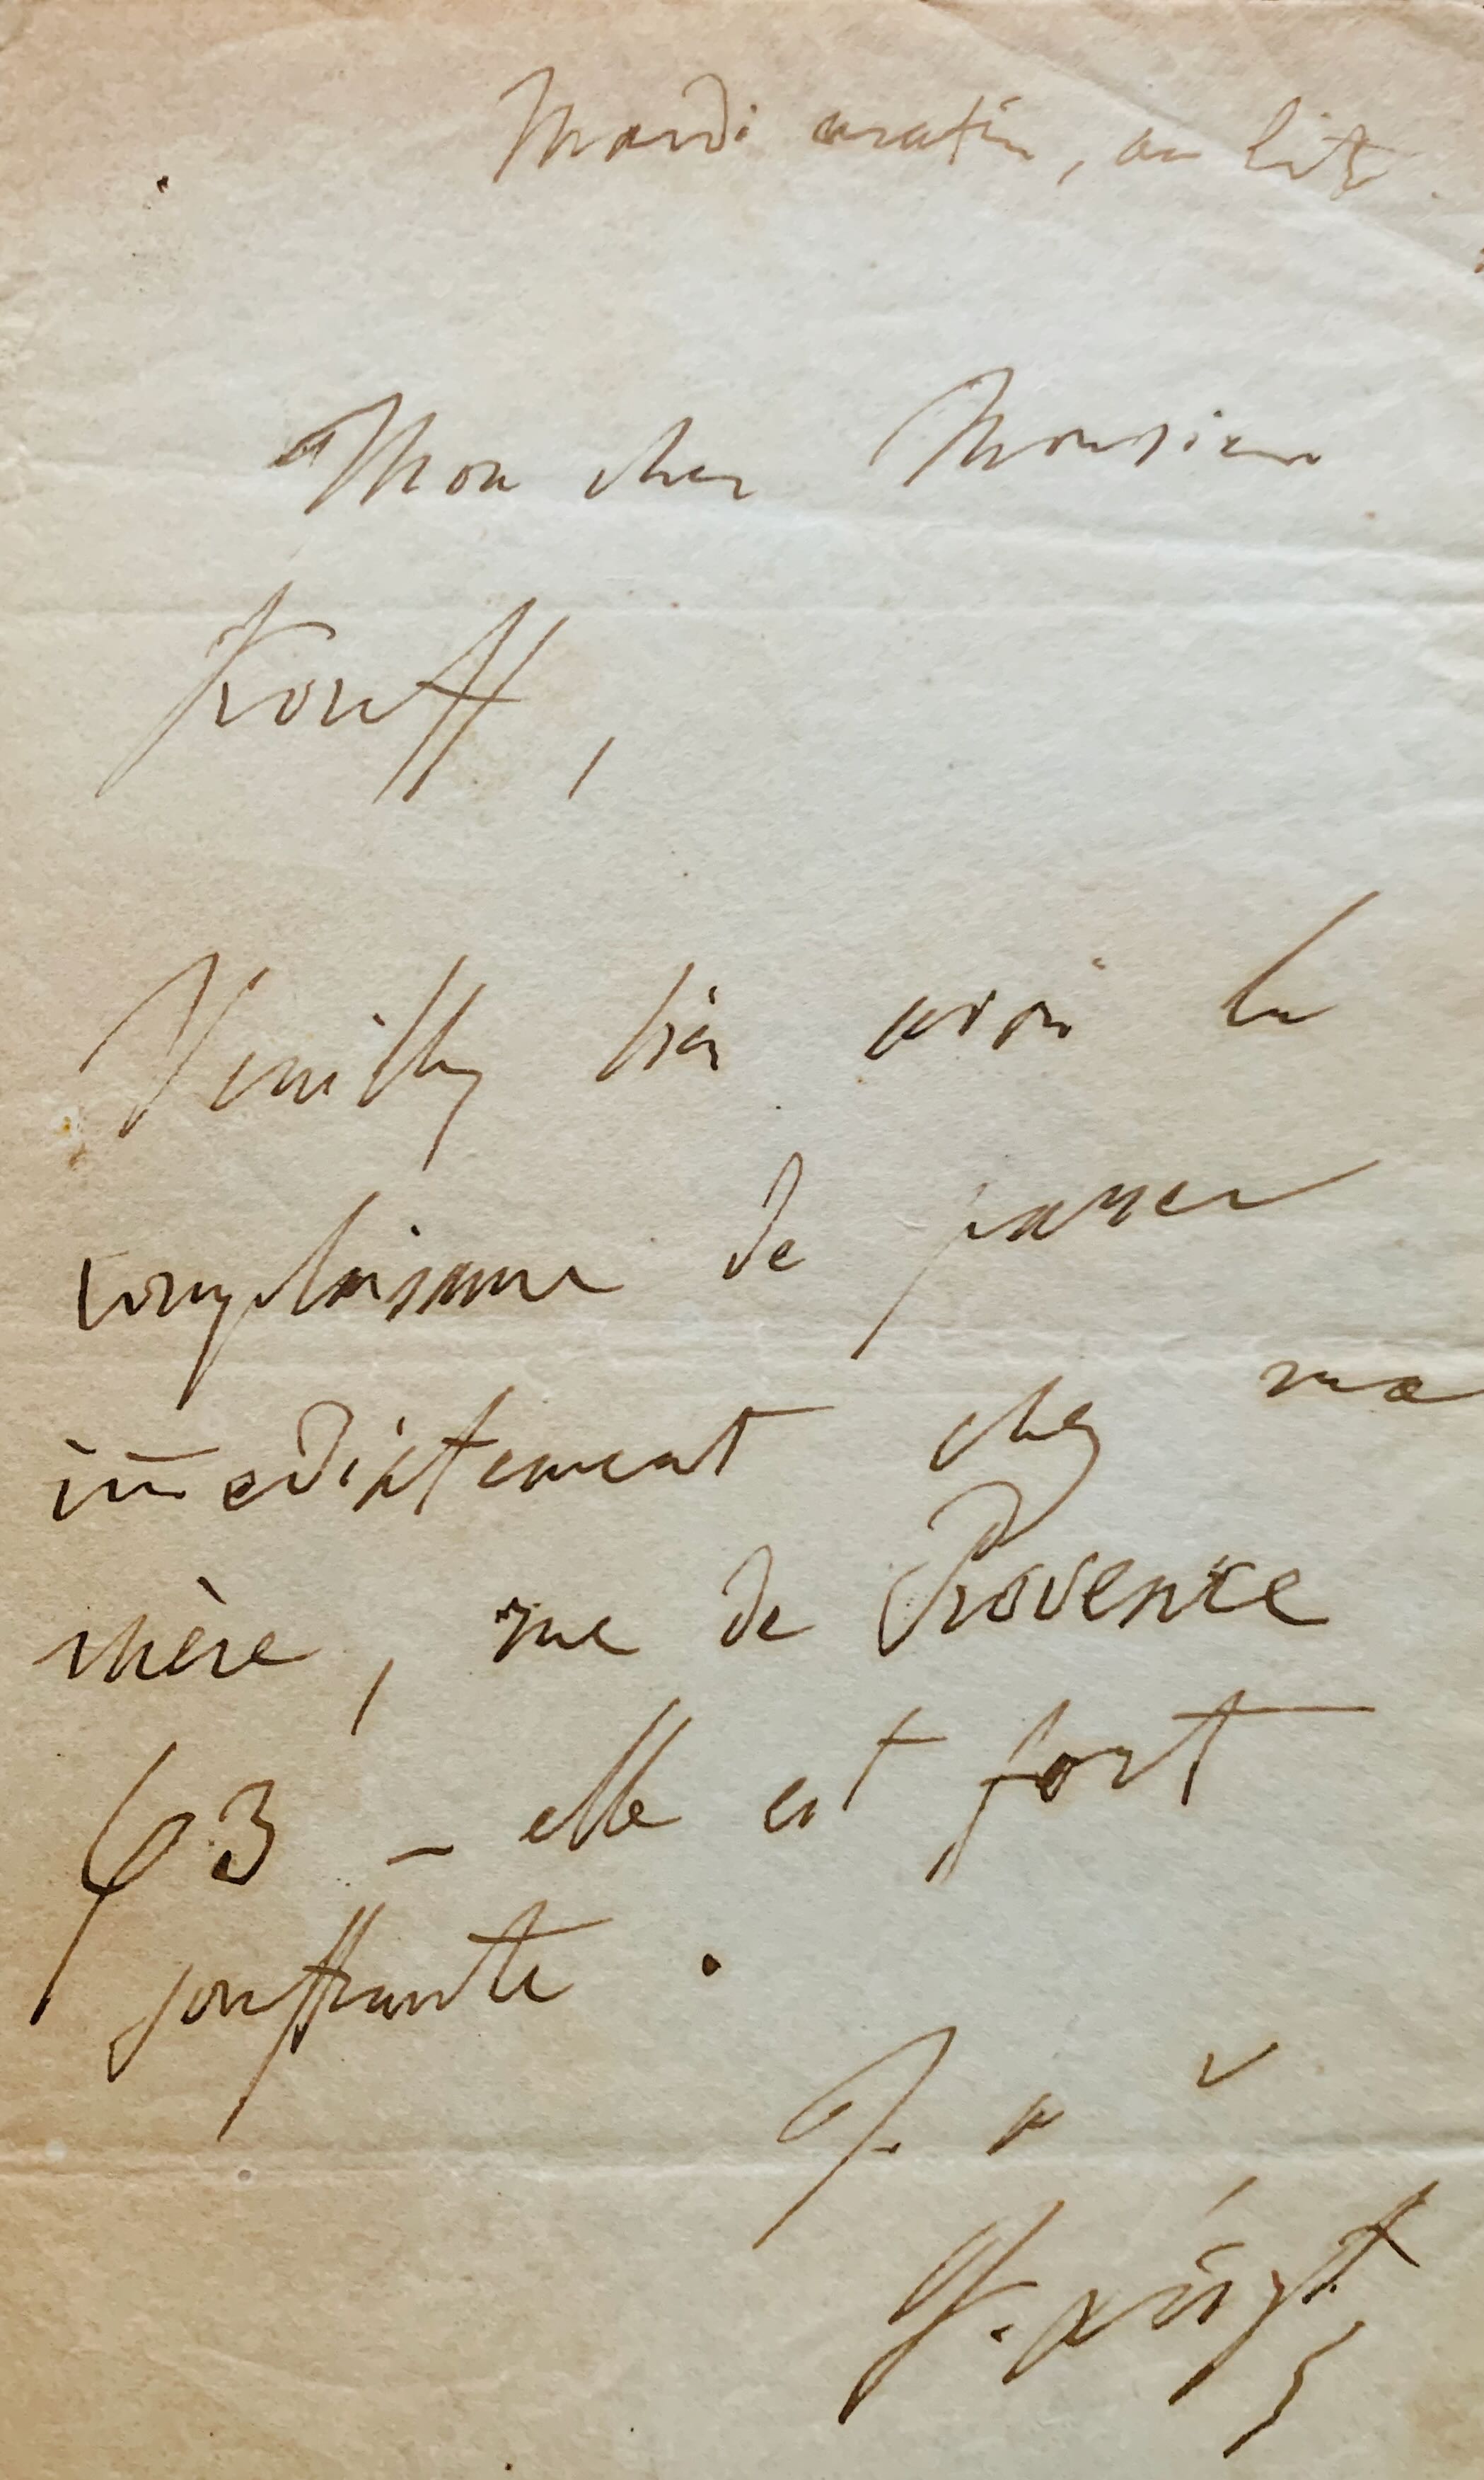 Mardi matin, au lit.
Mon cher Monsieur
Koreff,
Veuillez bien avoir la
complaisance de passer
immediatement chez ma
mère, rue de Provence
63 – elle est fort
souffrante.
T. a v
F. Liszt